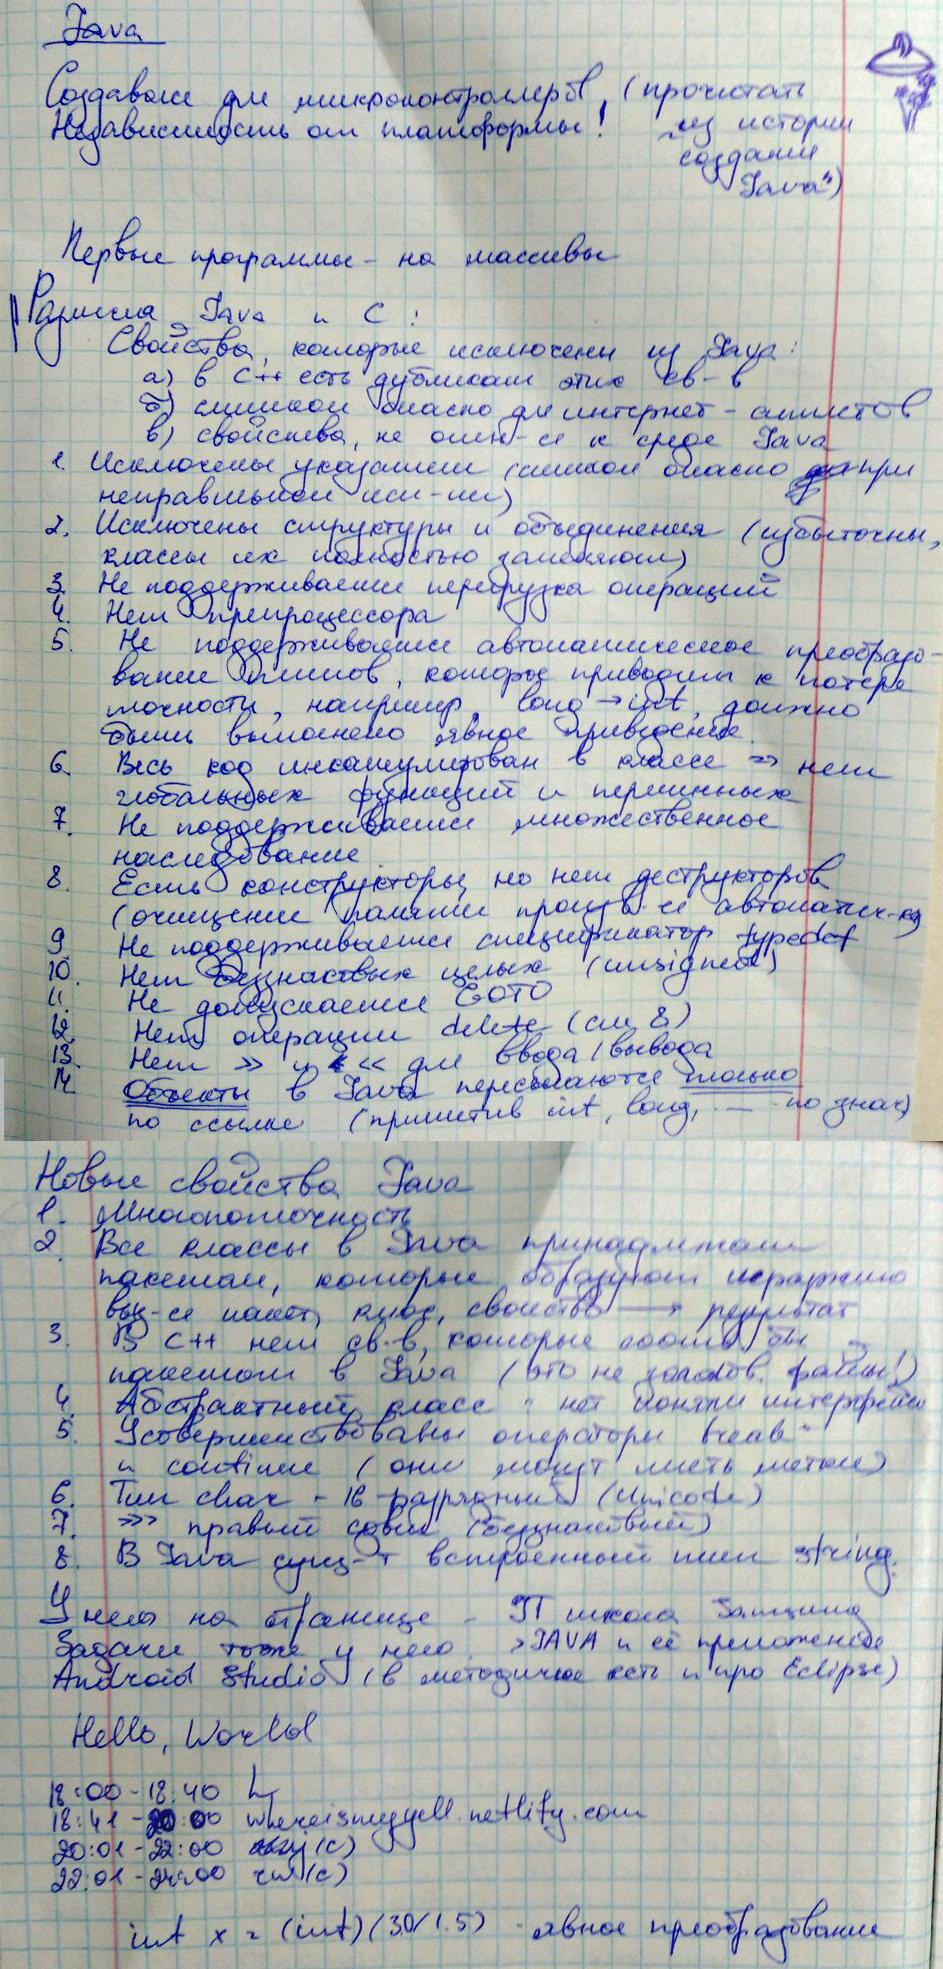 Java
Создавался для микроконтроллеров, (прочитать
Независимость от платформы! „из истории
создания
Java")
Первые программы - на массивы
Различия Java и C :
Свойства, которые исключены из Java:
а) в C++ есть дубликат этих св-в
б) слишком опасно для интернет-
в) свойства, не отн-ся к среде Java
1. Исключены указатели (слишком опасно при
неправильном исп-ии)
2. Исключены структуры и объединения (избыточны,
классы их полностью заменяют)
3. Не поддерживается перегрузка операций
4. Нет препроцессора
5. Не поддерживается автоматическое преобразо-
вание типов, которое приводит к потере
точности, например, long → int, должно
быть выполнено явное приведение
6. Весь код инкапсулирован в классе => нет
глобальных функций и переменных
7. Не поддерживается множественное
наследование
8. Есть конструкторы, но нет деструкторов
(очищение памяти произв-ся автоматич-ки)
9 Не поддерживается спецификатор typedef
10. Нет беззнаковых целых (unsigned)
11. Не допускается GOTO
12. Нет операции delete (см 8)
13. Нет >> и << для ввода/вывода
14 Объекты в Java пересылаются только
по ссылке (примитив int, long, ... - по знач)
Новые свойства Java
1. Многопоточность
2. Все классы в Java принадлежат
пакетам, которые образуют иерархию
пакет, класс, свойство → результат
3. В C++ нет св-в, которые соотв. бы
пакетам в Java (это не заголов. файлы!)
4. Абстрактный класс : нет понятия интерфейса
5. Усовершенствованы операторы break
и continue (они могут иметь метки)
6. Тип char - 16-разрядный (Unicode)
7. >>> правый сдвиг (беззнаковый)
8. В Java сущ-т встроенный тип string.
У него на странице - IT школа Samsung
Задачи тоже у него >JAVA и её приложение
Android Studio (в методичке есть и про Eclipse)
Hello, World
18:00-18:40 L
18:41-20:00 whereismygell.netlify.com
20:01-22:00 (с)
22:01-24:00 (с)
int x = (int)(3.0/1.5) - явное преобразование